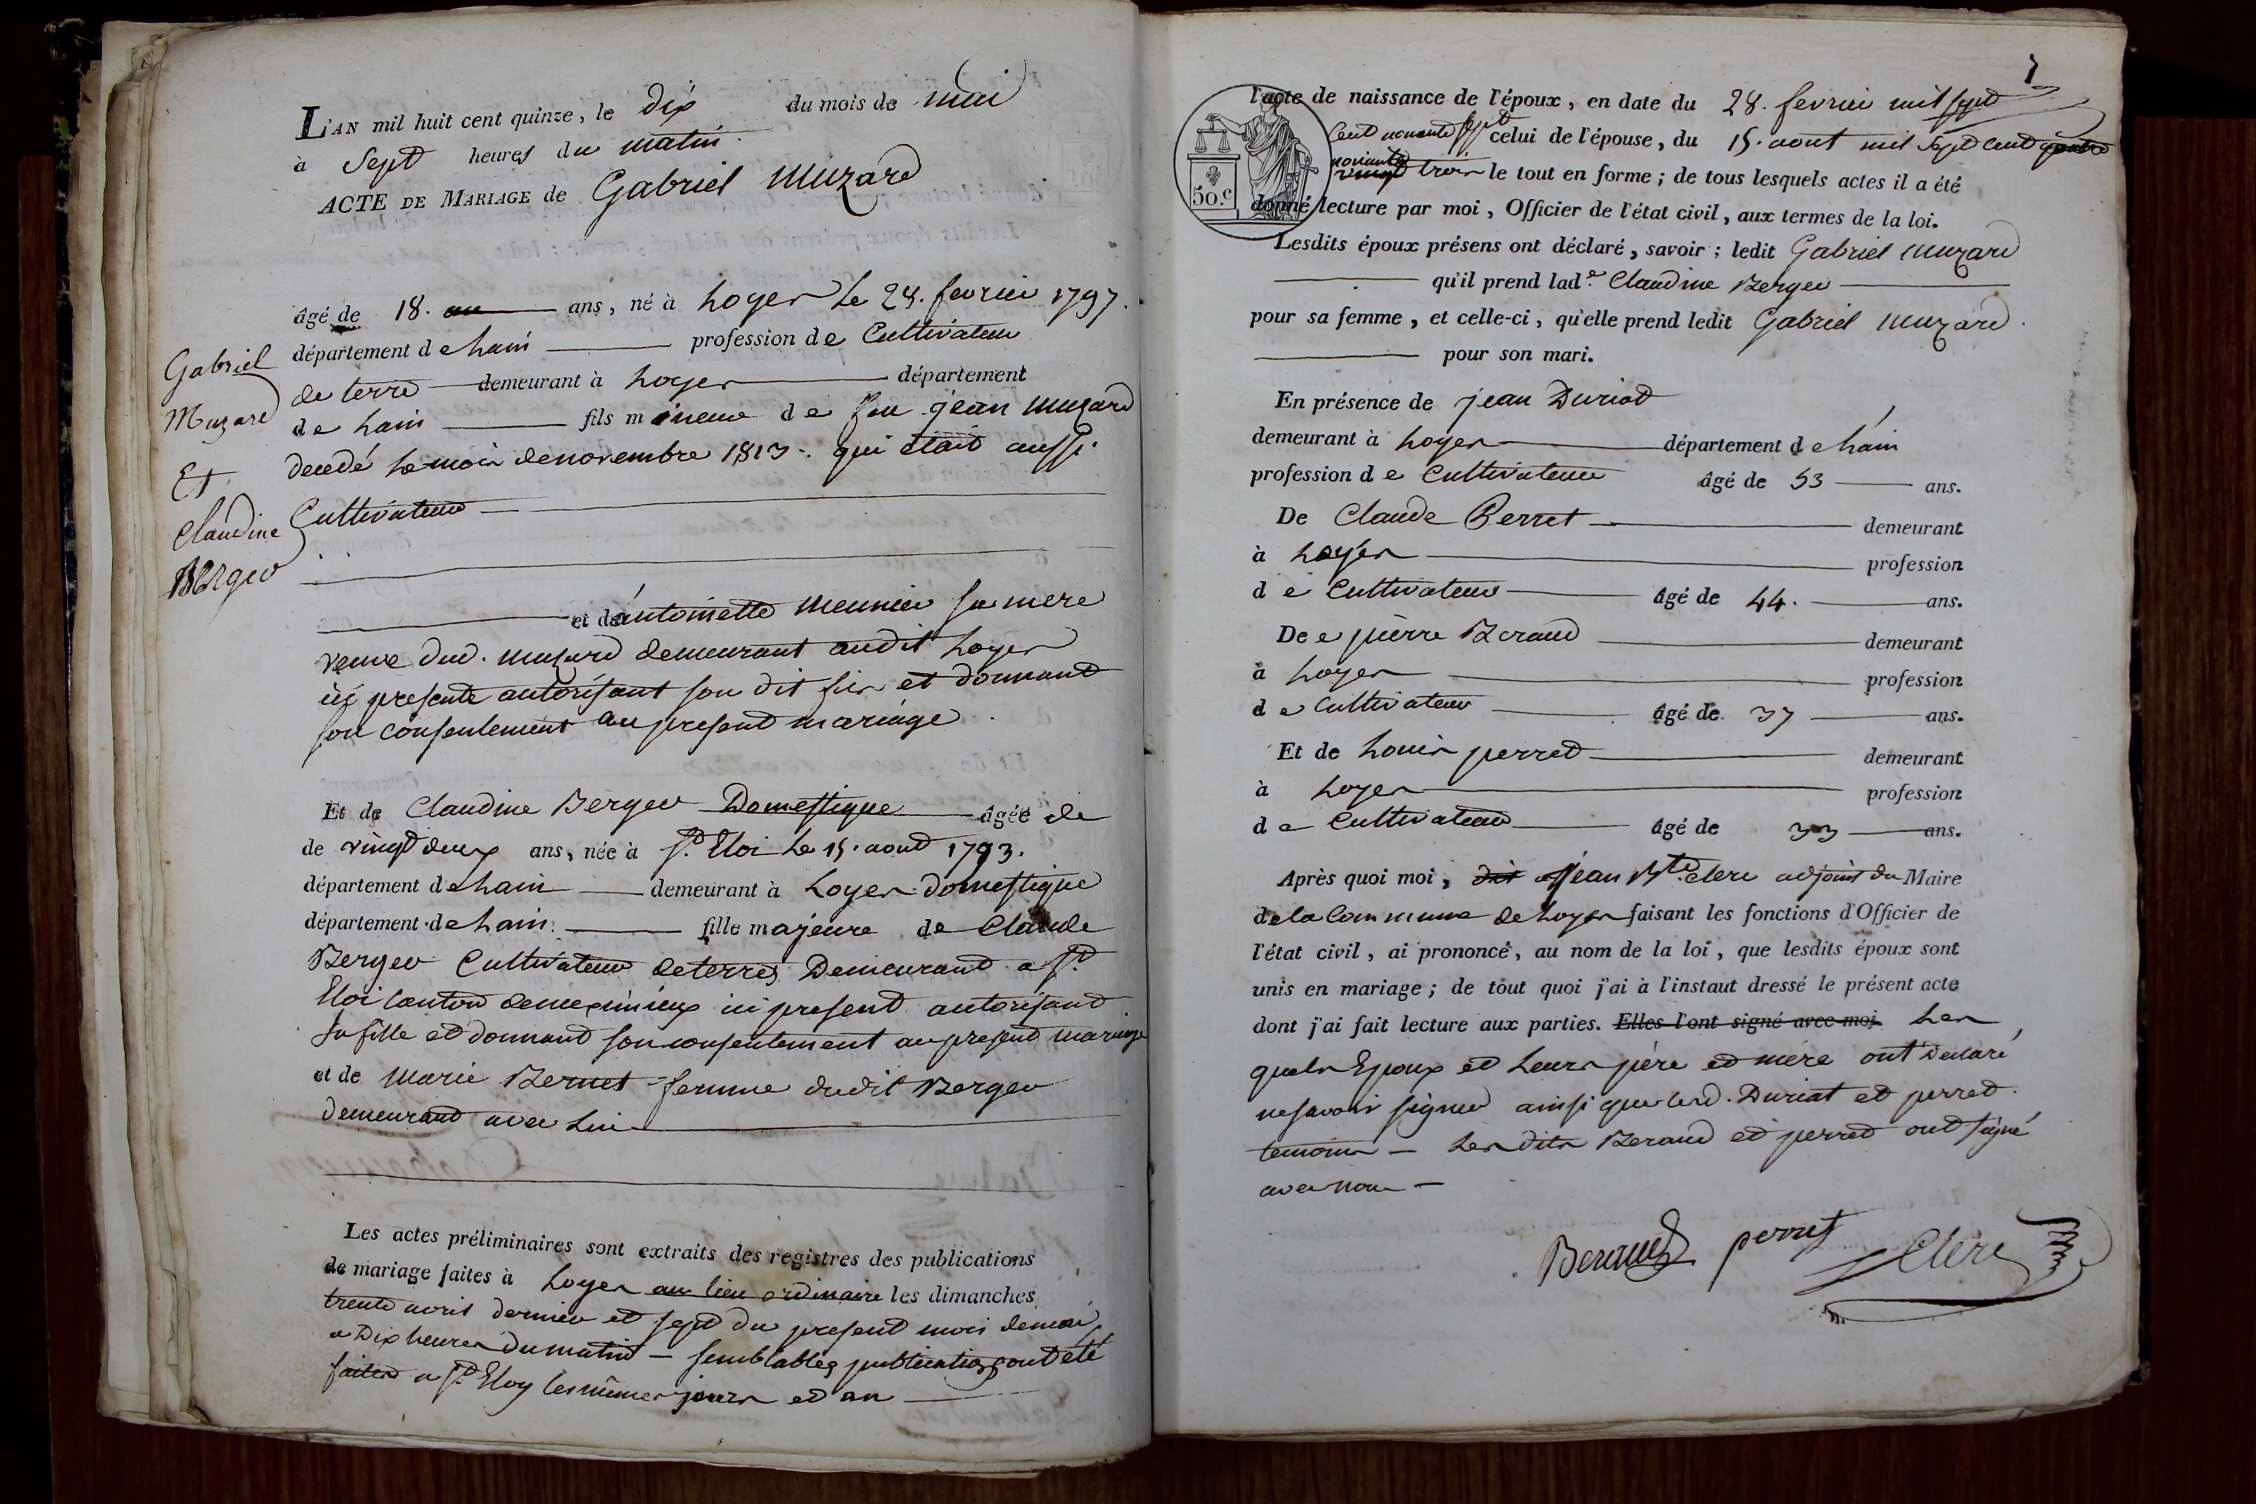 L'AN mil huit cent quinze, le dix du mois de mai
à Sept heures du matin.
ACTE DE MARIAGE de Gabriel Muzard
âgé de 18. an ans, né à Loyes le 28. fevrier 1797.
département de Lain profession de Cultivateur
de terre demeurant à Loyes département
de Lain fils mineur de feu jean Muzard
decedé le mois de novembre 1813. qui était aussi
Cultivateur
Gabriel
Muzard
Et
Claudine
Berger
et de antoinette Meunier sa mere
veuve dud. Muzard demeurant audit Loyes
ici presente autorisant son dit fils et donnant
son consentement au present mariage.
Et de Claudine Berger Domestique âgée de
de vingt deux ans, née à St. Eloi le 15. aout 1793.
département de Lain demeurant à Loyes domestique
département de Lain. fille majeure de Claude
Berger Cultivateur de terres Demeurant a St.
Eloi canton de meximieux ici present autorisant
sa fille et donnant son consentement au present mariage
et de Marie Bernet femme dudit Berger
demeurant avec lui
Les actes préliminaires sont extraits des registres des publications
de mariage faites à Loyes au lieu ordinaire les dimanches
trente avril dernier et sept du present mois de mai
a Dix heures du matin – semblables publications ont été
faites a St. Eloy les mêmes jours et an
7
l'acte de naissance de l'époux, en date du 28. fevrier mil sept
Cent nonante sept celui de l'épouse, du 15. aout mil Sept Cent quatre
nonante
vingt trois le tout en forme ; de tous lesquels actes il a été
50.c
donné lecture par moi, Officier de l'état civil, aux termes de la loi.
Lesdits époux présens ont déclaré, savoir ; ledit Gabriel Muzard
qu'il prend lade. Claudine Berger
pour sa femme, et celle-ci, qu'elle prend ledit Gabriel Muzard.
pour son mari.
En présence de jean Duriat
demeurant à Loyes département de Lain
profession de Cultivateur âgé de 53 ans.
De Claude Perret demeurant
à Loyes profession
de Cultivateur âgé de 44. ans.
De e pierre Beraud demeurant
à Loyes profession
de Cultivateur âgé de 37 ans.
Et de Louis perret demeurant
à Loyes profession
de Cultivateur âgé de 33 ans.
Après quoi moi, jean Bte. clerc adjoint du Maire
de la Commune de Loyes faisant les fonctions d'Officier de
l'état civil, ai prononcé, au nom de la loi, que lesdits époux sont
unis en mariage ; de tout quoi j'ai à l'instaut dressé le présent acte
dont j'ai fait lecture aux parties. Elles l'ont signé avec moi Les
quels Epoux et Leurs père et mère ont Declaré
ne savoir signer ainsi que lesd. Duriat et perret.
temoins – Les dits Beraud et perret ont signé
avec nous –
Beraud perret Clerc